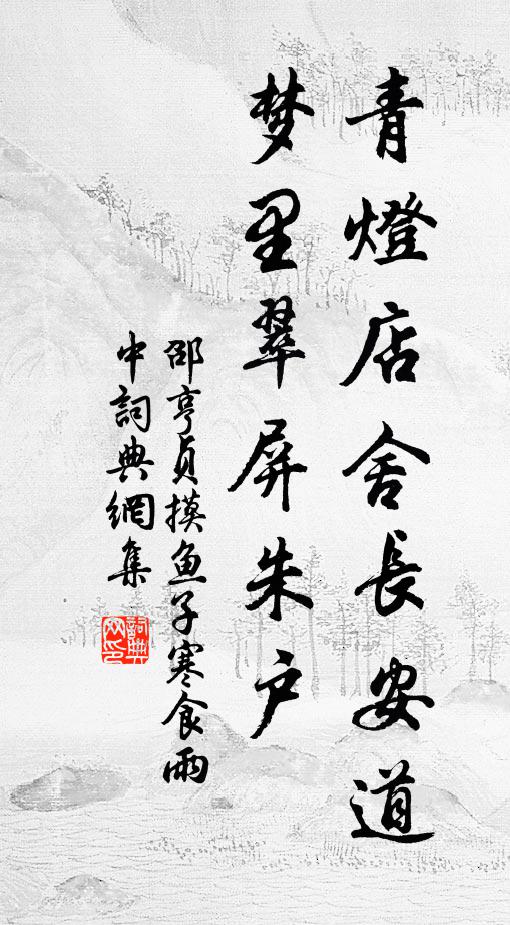 青燈店舍長安道
梦里翠屏朱户
邵亨貞摸鱼子寒食雨
中詞典網集
詞典
网印